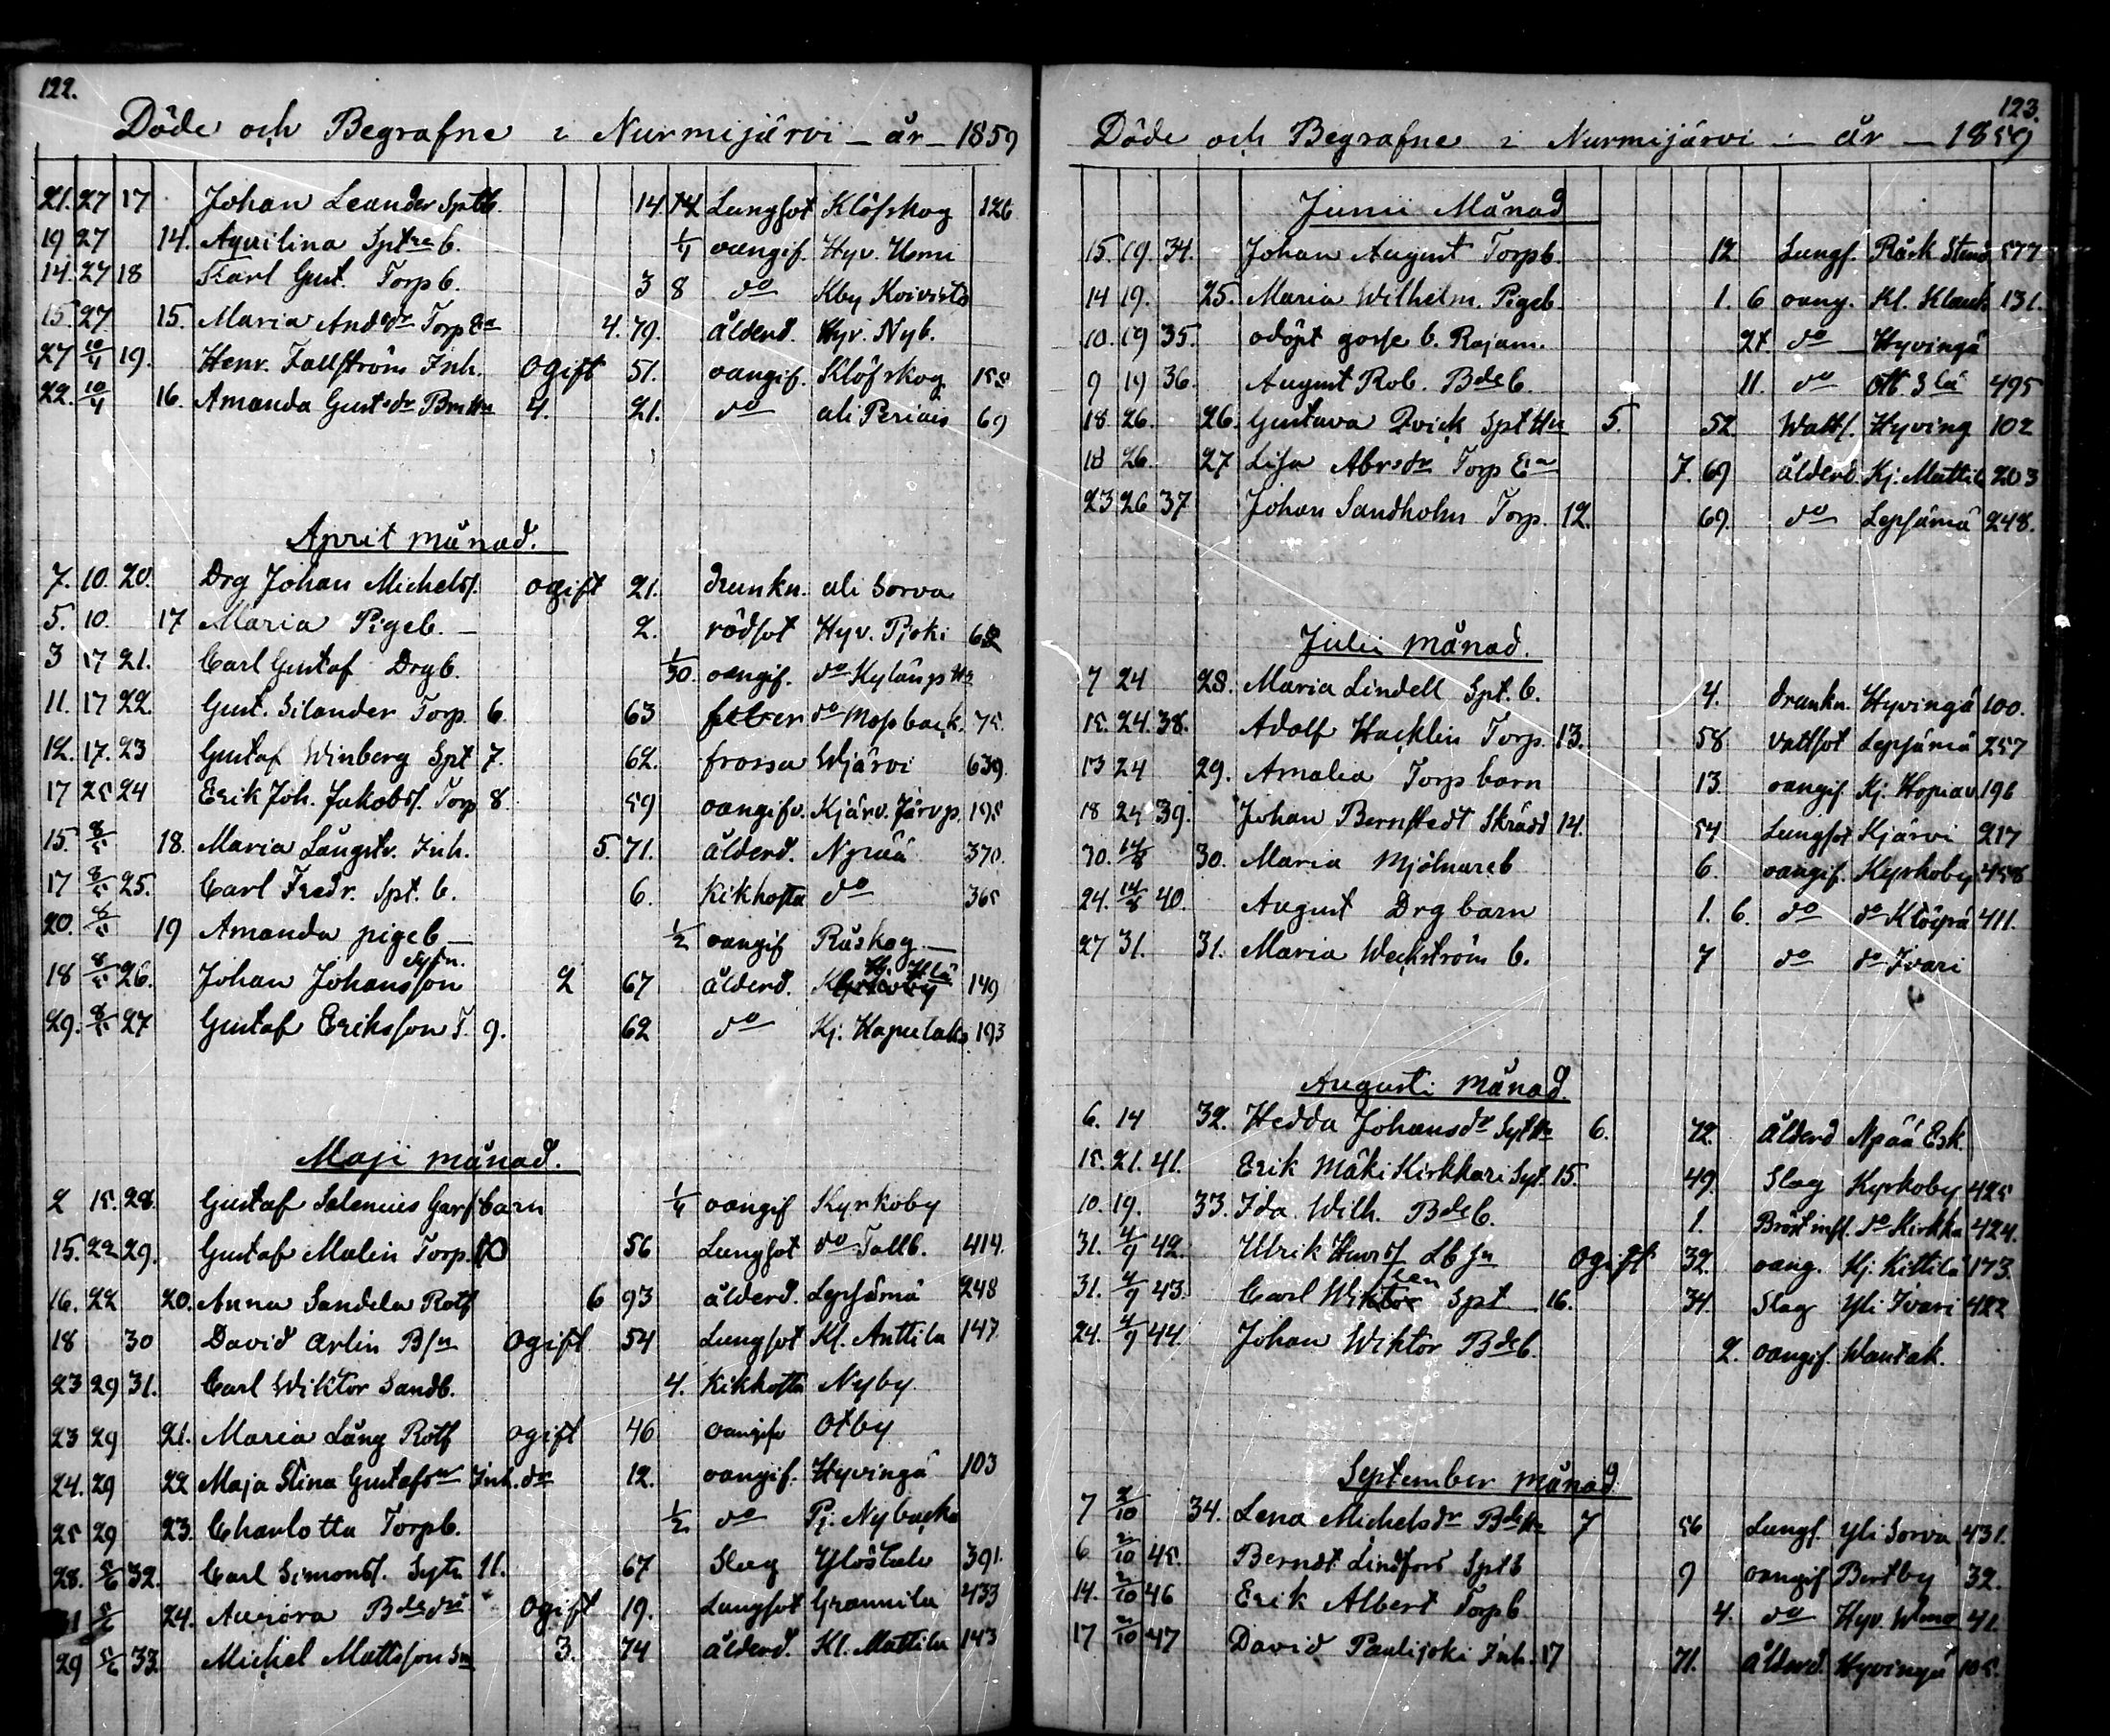 122.
Döde och Begrafne i Nurmijärvi – år – 1859
21. 27 17 Johan Leander Sptb. 14 14 Lungsot Klöfskog 126
19 27 14. Aqvilina Sptre b. 1/4 oangif. Hyv.
14. 27 18 Karl Gust. Torp b. 3 8 do Kby Koivisto
15. 27 15. Maria Andsdr Torp Ea 4. 79. ålderd. Hyv. Nyb.
27 10/4 19. Henr. Fallström Inh. ogift 51. oangif. Klöfskog 158
22. 10/4 16. Amanda Gustsdr 4. 21. do ali Periais 69
April månad.
7. 10. 20. Drg Johan Michelss. ogift 21. drunkn. ali Sorva
5. 10. 17 Maria Pigeb. – 2. rödsot Hyv. Pjoki 62
3 17 21. Carl Gustaf Drgb. 1/30 oangif. do
11. 17 22. Gust. Silander Torp. 6. 63 feber do Mossback. 75.
12. 17. 23 Gustaf Winberg Spt 7. 62. frossa Wjärvi 639.
17 25 24 Erik Joh. Jakobss. Torp 8. 59 oangifv. Kjärv. Järvp. 195
15. 8/5 18. Maria Långstr. Inh. 5. 71. ålderd. Npää 370.
17 8/5 25. Carl Fredr. Spt. b. 6. Kikhosta do 365
20. 8/5 19 Amanda pigeb – 1/2 oangif Råskog –
18 8/5 26. Johan Johansson Sytn. 2 67 ålderd. 149
29. 8/5 27 Gustaf Eriksson T. 9. 62 do Kj. 193
Maji månad.
2 15. 28. Gustaf Salenius Garf barn 1/4 oangif Kyrkoby
15. 22 29. Gustaf Malin Torp. 10 56 Lungsot do Tallb. 414.
16. 22 20. Anna Sandela Roth 6 93 ålderd. Lepsämä 248
18 30 David Arlin Bsn ogift 54 Lungsot Kl. Anttila 147
23 29 31. Carl Wiktor Sandb. 4. Kikhosta Nyby.
23 29 21. Maria Lång Roth ogift 46 oangifv Otby
24. 29 22 Maja Stina Gustafsdr Inh. dr 12. oangif. Hyvingä 103
25 29 23. Charlotta Torpb. 1/2 do Pj. Nybacka
28. 5/6 32. Carl Simonss. Sytn 11. 67 Slag 391.
31 5/6 24. Aurora Bdedr ogift 19. Lungsot Grannila 433
29 5/6 33. Michel Mattsson 3. 74 ålderd. Kl. Mattila 143
123.
Döde och Begrafne i Nurmijärvi – år – 1859
Junii Månad
15. 19. 34. Johan August Torpb. 12. Lungs. Råsk 577
14 19. 25. Maria Wilhelm. Pigeb. 1. 6 oang. Kl. Klauk 131.
10. 19 35. odöpt gosse b. Rajam. 21. do Hyvingä
9 19 36. August Rob. Bdeb. 11. do 495
18 26. 26. Gustava Qvick Spt Hu 5. 52 Watts. Hyving 102
18 26. 27 Lisa Abrsdr Torp Ea 7. 69 ålderd. Kj. Mattil 203
23 26 37 Johan Sandholm Torp. 12. 69. do Lepsämä 248.
Julii månad.
7 24 28. Maria Lindell Spt. b. 4. drunkn. Hyvingä 100.
15. 24. 38. Adolf Hacklin Torp. 13. 58 vattsot Lepsämä 257
13 24 29. Amalia Torp barn 13. oangif Kj. Hopiav. 196
18 24 39. Johan Bernstedt Skrädd 14. 54 Lungsot Kjärvi 217
30. 14/8 30. Maria Mjölnareb 6. oangif. Kyrkoby 458
24. 14/8 40. August Drg barn 1. 6. do do 411.
27 31. 31. Maria Weckström b. 7 do do Ivari
Augusti månad.
6. 14 32. Hedda Johansdr Sytn 6. 72. ålderd Npää Esk.
15. 21. 41. Erik Mäki Kirkkari Syt. 15. 49. Slag Kyrkoby 425
10. 19. 33. Ida Wilh. Bdeb. 1. Bröst infl. do Kirkka 424.
31. 4/9 42. Ulrik ogift 32. oang. Kj. Kittilä 173.
31. 4/9 43. Carl Wiktor Spt 16. 34. Slag Yli Ivari 422
24. 4/9 44. Johan Wiktor Bdeb. 2. oangif. Wantak.
September månad.
7 2/10 34. Lena Michelsdr 7 56 Lungs. Yli Sorva 431.
6 2/10 45. Berndt Lindfors Sptb 9 oangif Bertby 32.
14. 2/10 46 Erik Albert Torpb 4. do Hyv. 41.
17 2/10 47 David Paulijoki Inh. 17 71. ålderd. Hyvingä 105.